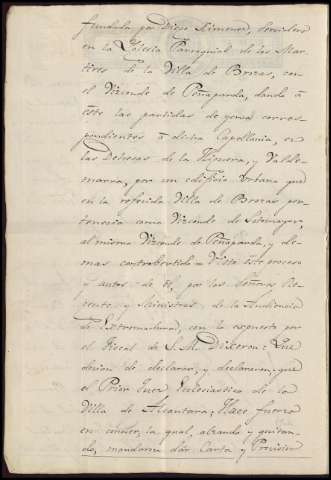 fundada por Diego Ximenez, servidera
en la Iglesia Parroquial de los Mar-
tires de la Villa de Brozas, con
el Vizconde de Peñaparda, dando á
este las partidas de yerva corres-
pondientes á dicha Capellania, en
las Dehesas de la Higuera, y Valde-
marra, por un edificio urbano que
en la referida Villa de Brozas per-
tenecia como Vizconde de
al mismo Vizconde de Peñaparda, y de-
mas contrabertido = Visto este proceso
y autos de él, por los Señores Re-
gente y Ministros de la Audiencia
de Extremadura, con lo expuesto por
el Fiscal de S. M. Dixeron: Que
devian de declarar, y declararon: que
el Prior Juez Eclesiastico de la
Villa de Alcantara, Hace fuerza
en conocer, la qual, alzando y quitan-
do, mandaron dar Carta y Provision